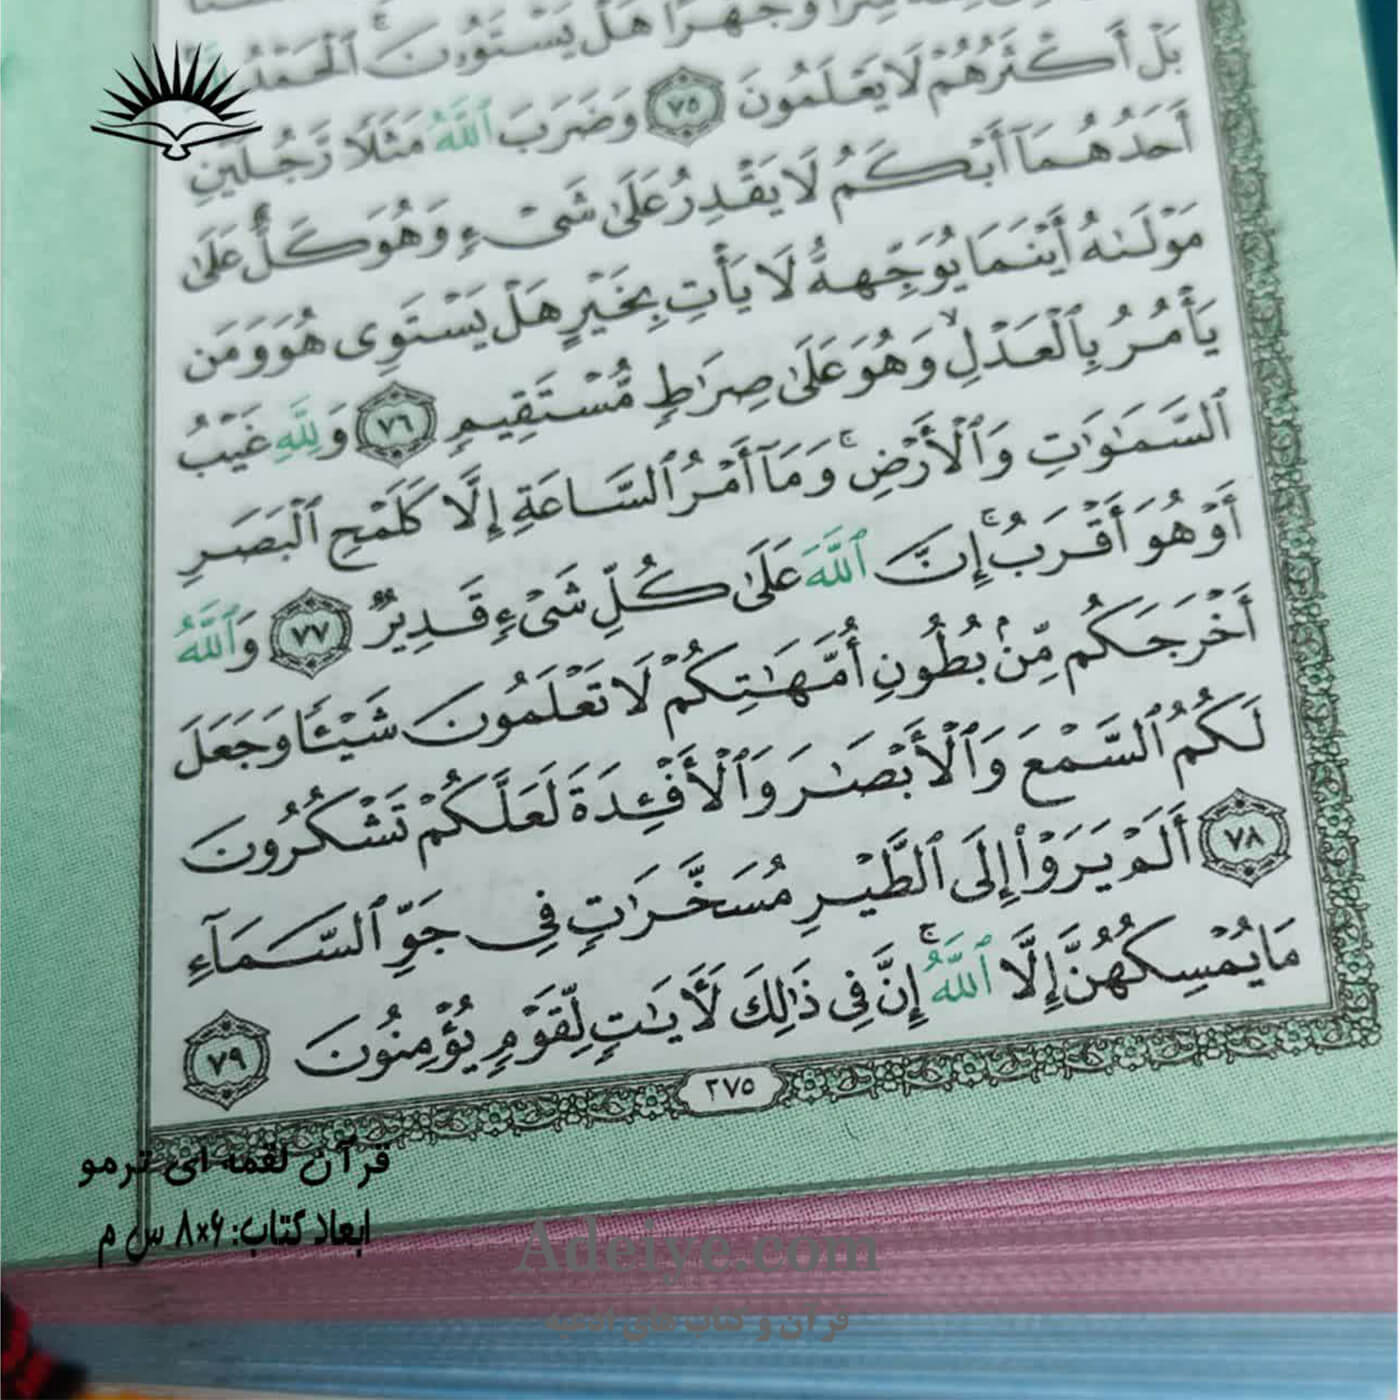 سِرًّا وَجَهْرًا هَلْ يَسْتَوُۥنَ ۚ ٱلْحَمْدُ
بَلْ أَكْثَرُهُمْ لَا يَعْلَمُونَ ٧٥ وَضَرَبَ ٱللَّهُ مَثَلًا رَّجُلَيْنِ
أَحَدُهُمَآ أَبْكَمُ لَا يَقْدِرُ عَلَىٰ شَىْءٍ وَهُوَ كَلٌّ عَلَىٰ
مَوْلَىٰهُ أَيْنَمَا يُوَجِّههُّ لَا يَأْتِ بِخَيْرٍ هَلْ يَسْتَوِى هُوَ وَمَن
يَأْمُرُ بِٱلْعَدْلِ ۙ وَهُوَ عَلَىٰ صِرَٰطٍ مُّسْتَقِيمٍ ٧٦ وَلِلَّهِ غَيْبُ
ٱلسَّمَٰوَٰتِ وَٱلْأَرْضِ ۚ وَمَآ أَمْرُ ٱلسَّاعَةِ إِلَّا كَلَمْحِ ٱلْبَصَرِ
أَوْ هُوَ أَقْرَبُ ۚ إِنَّ ٱللَّهَ عَلَىٰ كُلِّ شَىْءٍ قَدِيرٌ ٧٧ وَٱللَّهُ
أَخْرَجَكُم مِّنۢ بُطُونِ أُمَّهَٰتِكُمْ لَا تَعْلَمُونَ شَيْـًٔا وَجَعَلَ
لَكُمُ ٱلسَّمْعَ وَٱلْأَبْصَٰرَ وَٱلْأَفْـِٔدَةَ لَعَلَّكُمْ تَشْكُرُونَ
٧٨ أَلَمْ يَرَوْا۟ إِلَى ٱلطَّيْرِ مُسَخَّرَٰتٍ فِى جَوِّ ٱلسَّمَآءِ
مَا يُمْسِكُهُنَّ إِلَّا ٱللَّهُ ۚ إِنَّ فِى ذَٰلِكَ لَـَٔايَٰتٍ لِّقَوْمٍ يُؤْمِنُونَ ٧٩
٢٧٥
قرآن لقمه ای ترمو
ابعاد کتاب: ۶×۸ س م
Adeiye.com
قرآن و کتاب های ادعیه